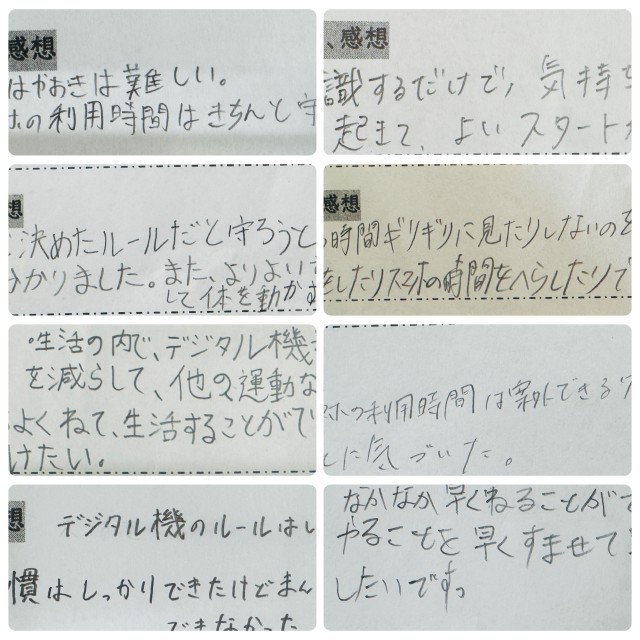 感想
はやおきは難しい。
ホの利用時間はきちんと守
、感想
識するだけで、気持ち
起きて、よいスタートが
感想
に決めたルールだと守ろうと
分かりました。また、よりよい
して体を動かす
感想
の時間ギリギリに見たりしないのを
をしたりスマホの時間をへらしたりで
生活の内で、デジタル機
を減らして、他の運動な
よくねて、生活することがで
けたい。
ホの利用時間は案外できる
とに気づいた。
想
デジタル機のルールはし
慣はしっかりできたけどまん
できなかった
なかなか早くねることがで
やることを早くすませて
したいです。